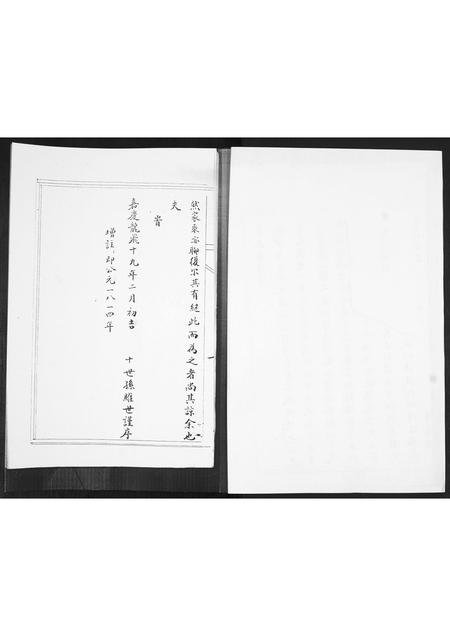 然家乘亦聊復尔其有继此而為之者尚其諒余也
夫
旹
嘉慶龍飛十九年二月初吉　十世孫雕世謹序
增註：即公元一八一四年